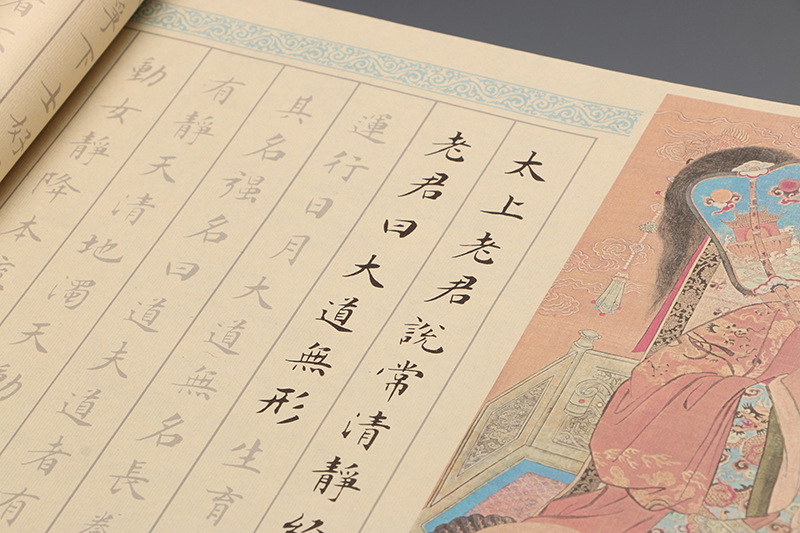 太上老君說常清靜經
老君曰大道無形生育
運行日月大道無名長養
其名强名曰道夫道者有
有靜天清地濁天動
動女靜降本